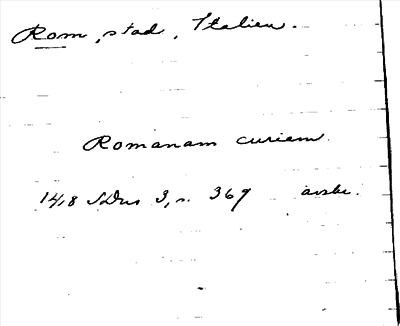 Rom, stad, Italien.
Romanam curiem
1418 SDns 3, s. 369 avskr.